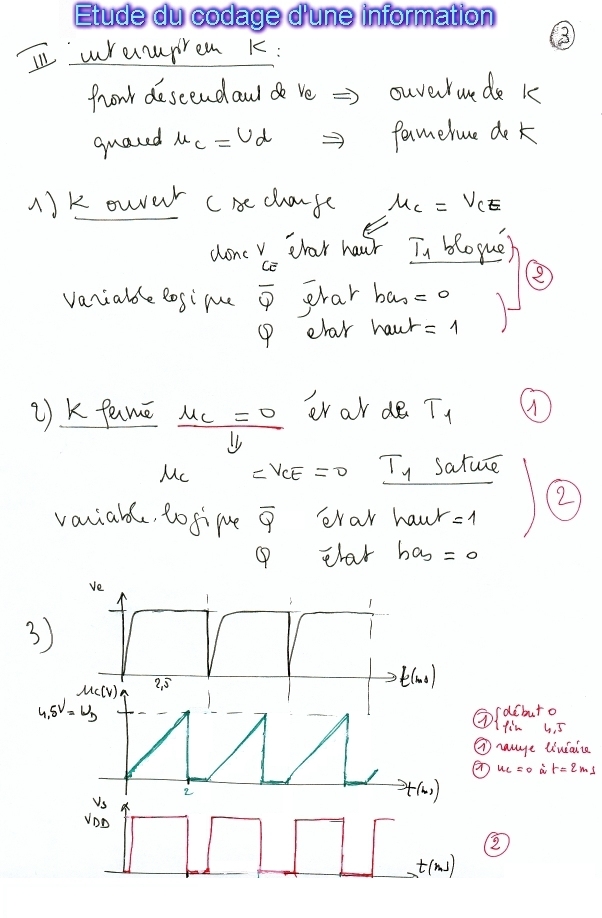 Etude du codage d'une information
3
III interrupteur K :
front descendant de Ve ⇒ ouverture de K
quand uc = Ud ⇒ fermeture de K
1) K ouvert C se charge uc = VCE
donc VCE état haut T1 bloqué
variable logique Q̅ état bas = 0
2
Q état haut = 1
2) K fermé uc = 0 état de T1
1
⇓
uc = VCE = 0 T1 saturé
variable logique Q̅ état haut = 1
2
Q état bas = 0
3)
Ve
2,5
t(ms)
uc(V)
4,5V = UD
2
t(ms)
1 début 0
fin 4,5
1 linéaire
1 uc = 0 à t = 2ms
Vs
VDD
t(ms)
2